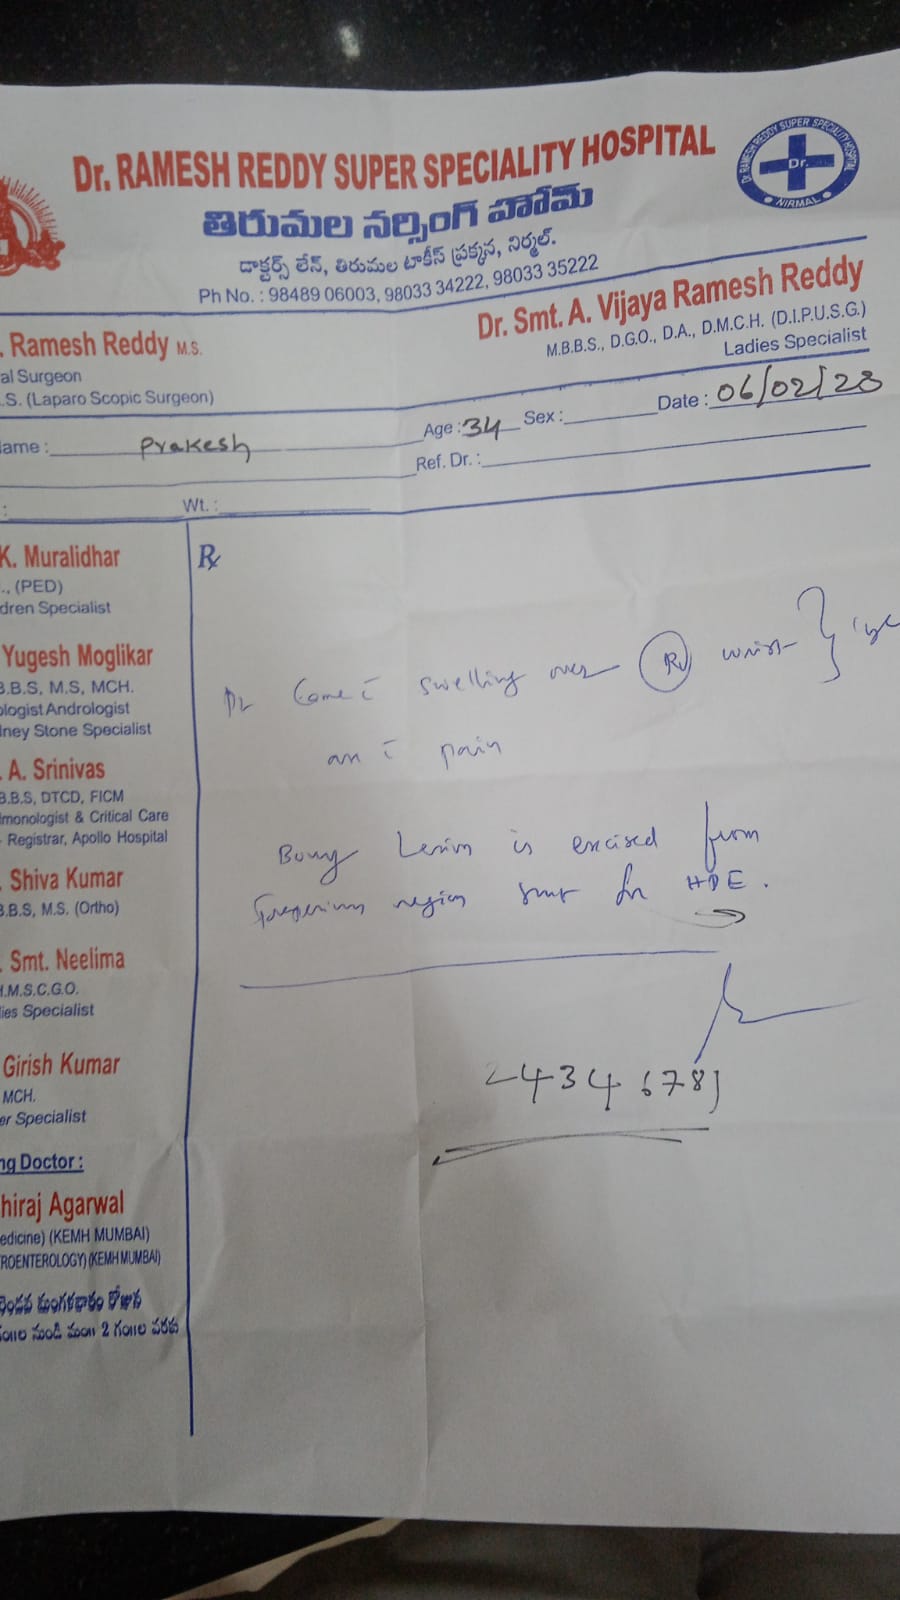 Dr. RAMESH REDDY SUPER SPECIALITY HOSPITAL
Dr. RAMESH REDDY SUPER SPECIALITY HOSPITAL
Dr.
NIRMAL
తిరుమల నర్సింగ్ హోమ్
డాక్టర్స్ లేన్, తిరుమల టాకీస్ ప్రక్కన, నిర్మల్.
Ph No. : 98489 06003, 98033 34222, 98033 35222
. Ramesh Reddy M.S.
al Surgeon
.S. (Laparo Scopic Surgeon)
Dr. Smt. A. Vijaya Ramesh Reddy
M.B.B.S., D.G.O., D.A., D.M.C.H. (D.I.P.U.S.G.)
Ladies Specialist
ame : Prakesh Age : 34 Sex : Date : 06/02/23
Ref. Dr. :
: Wt. :
K. Muralidhar
., (PED)
dren Specialist
Yugesh Moglikar
B.B.S, M.S, MCH.
ologist Andrologist
dney Stone Specialist
. A. Srinivas
B.B.S, DTCD, FICM
lmonologist & Critical Care
- Registrar, Apollo Hospital
. Shiva Kumar
B.B.S, M.S. (Ortho)
. Smt. Neelima
M.S.C.G.O.
ies Specialist
Girish Kumar
MCH.
er Specialist
ng Doctor :
hiraj Agarwal
edicine) (KEMH MUMBAI)
ROENTEROLOGY) (KEMH MUMBAI)
మంగళవారం రోజున
నుండి మ॥ 2 గం॥ల వరకు
Rx
Came c̄ swelling over Rt wrist
c̄ pain
Bony Lesion is excised from
region sent for HPE.